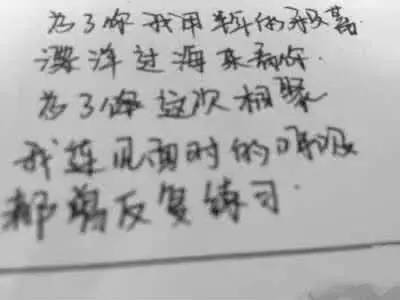 为了你我用半年的积蓄
漂洋过海来看你.
为了这次相聚
我连见面时的呼吸
都曾反复练习.